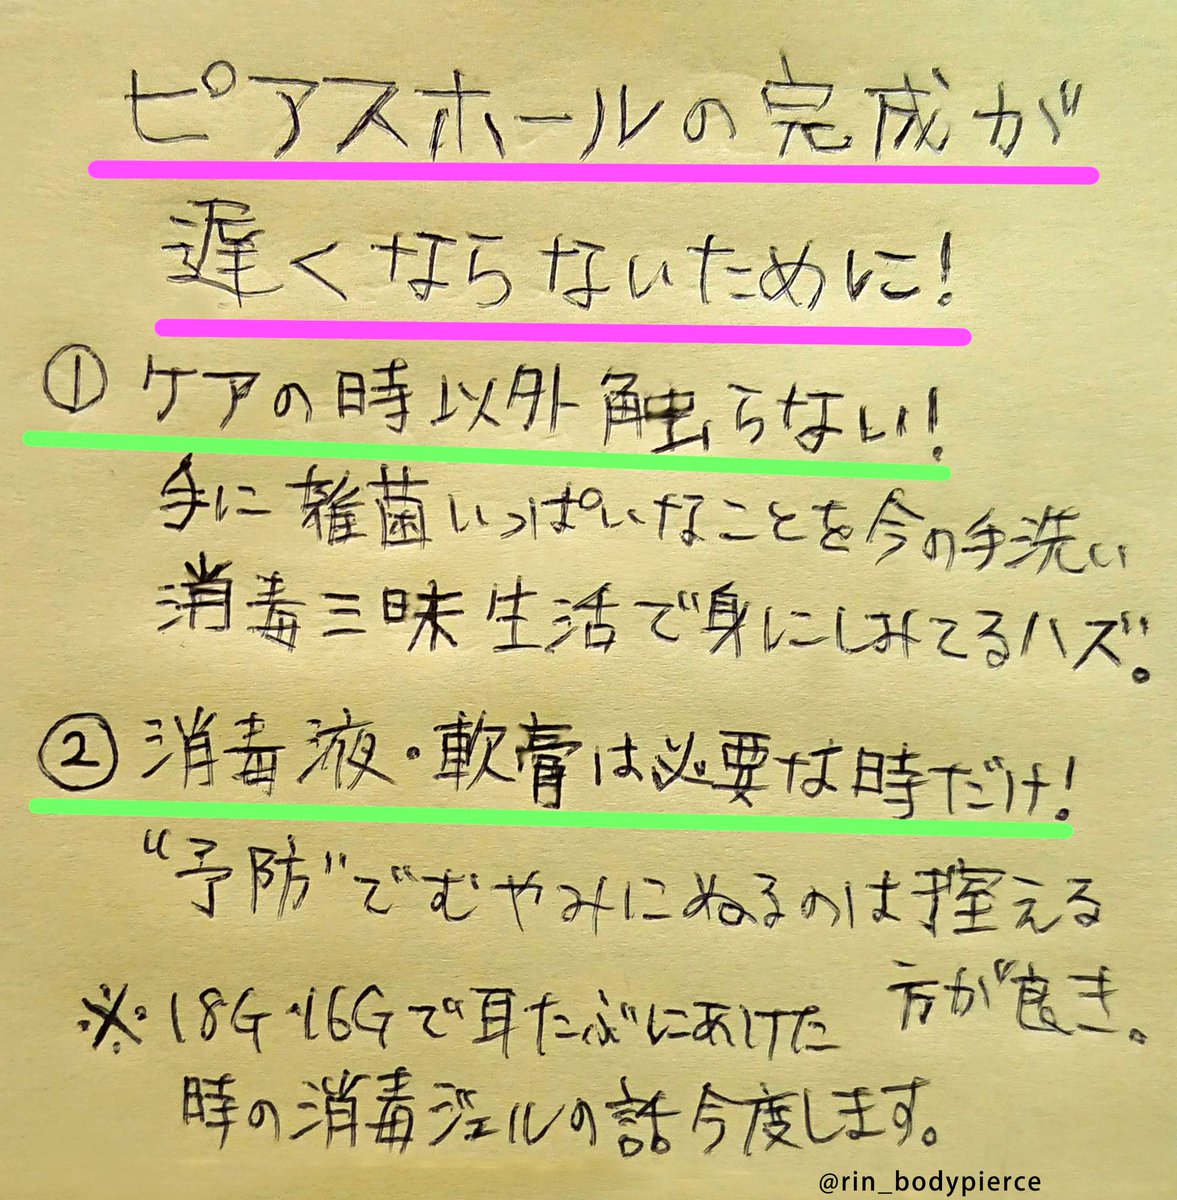 ピアスホールの完成が
遅くならないために!
① ケアの時以外触らない!
手に雑菌いっぱいなことを今の手洗い
消毒三昧生活で身にしみてるハズ。
② 消毒液・軟膏は必要な時だけ!
“予防”でむやみにぬるのは控える
方が良き。
※18G・16Gで耳たぶにあけた
時の消毒ジェルの話今度します。
@rin_bodypierce